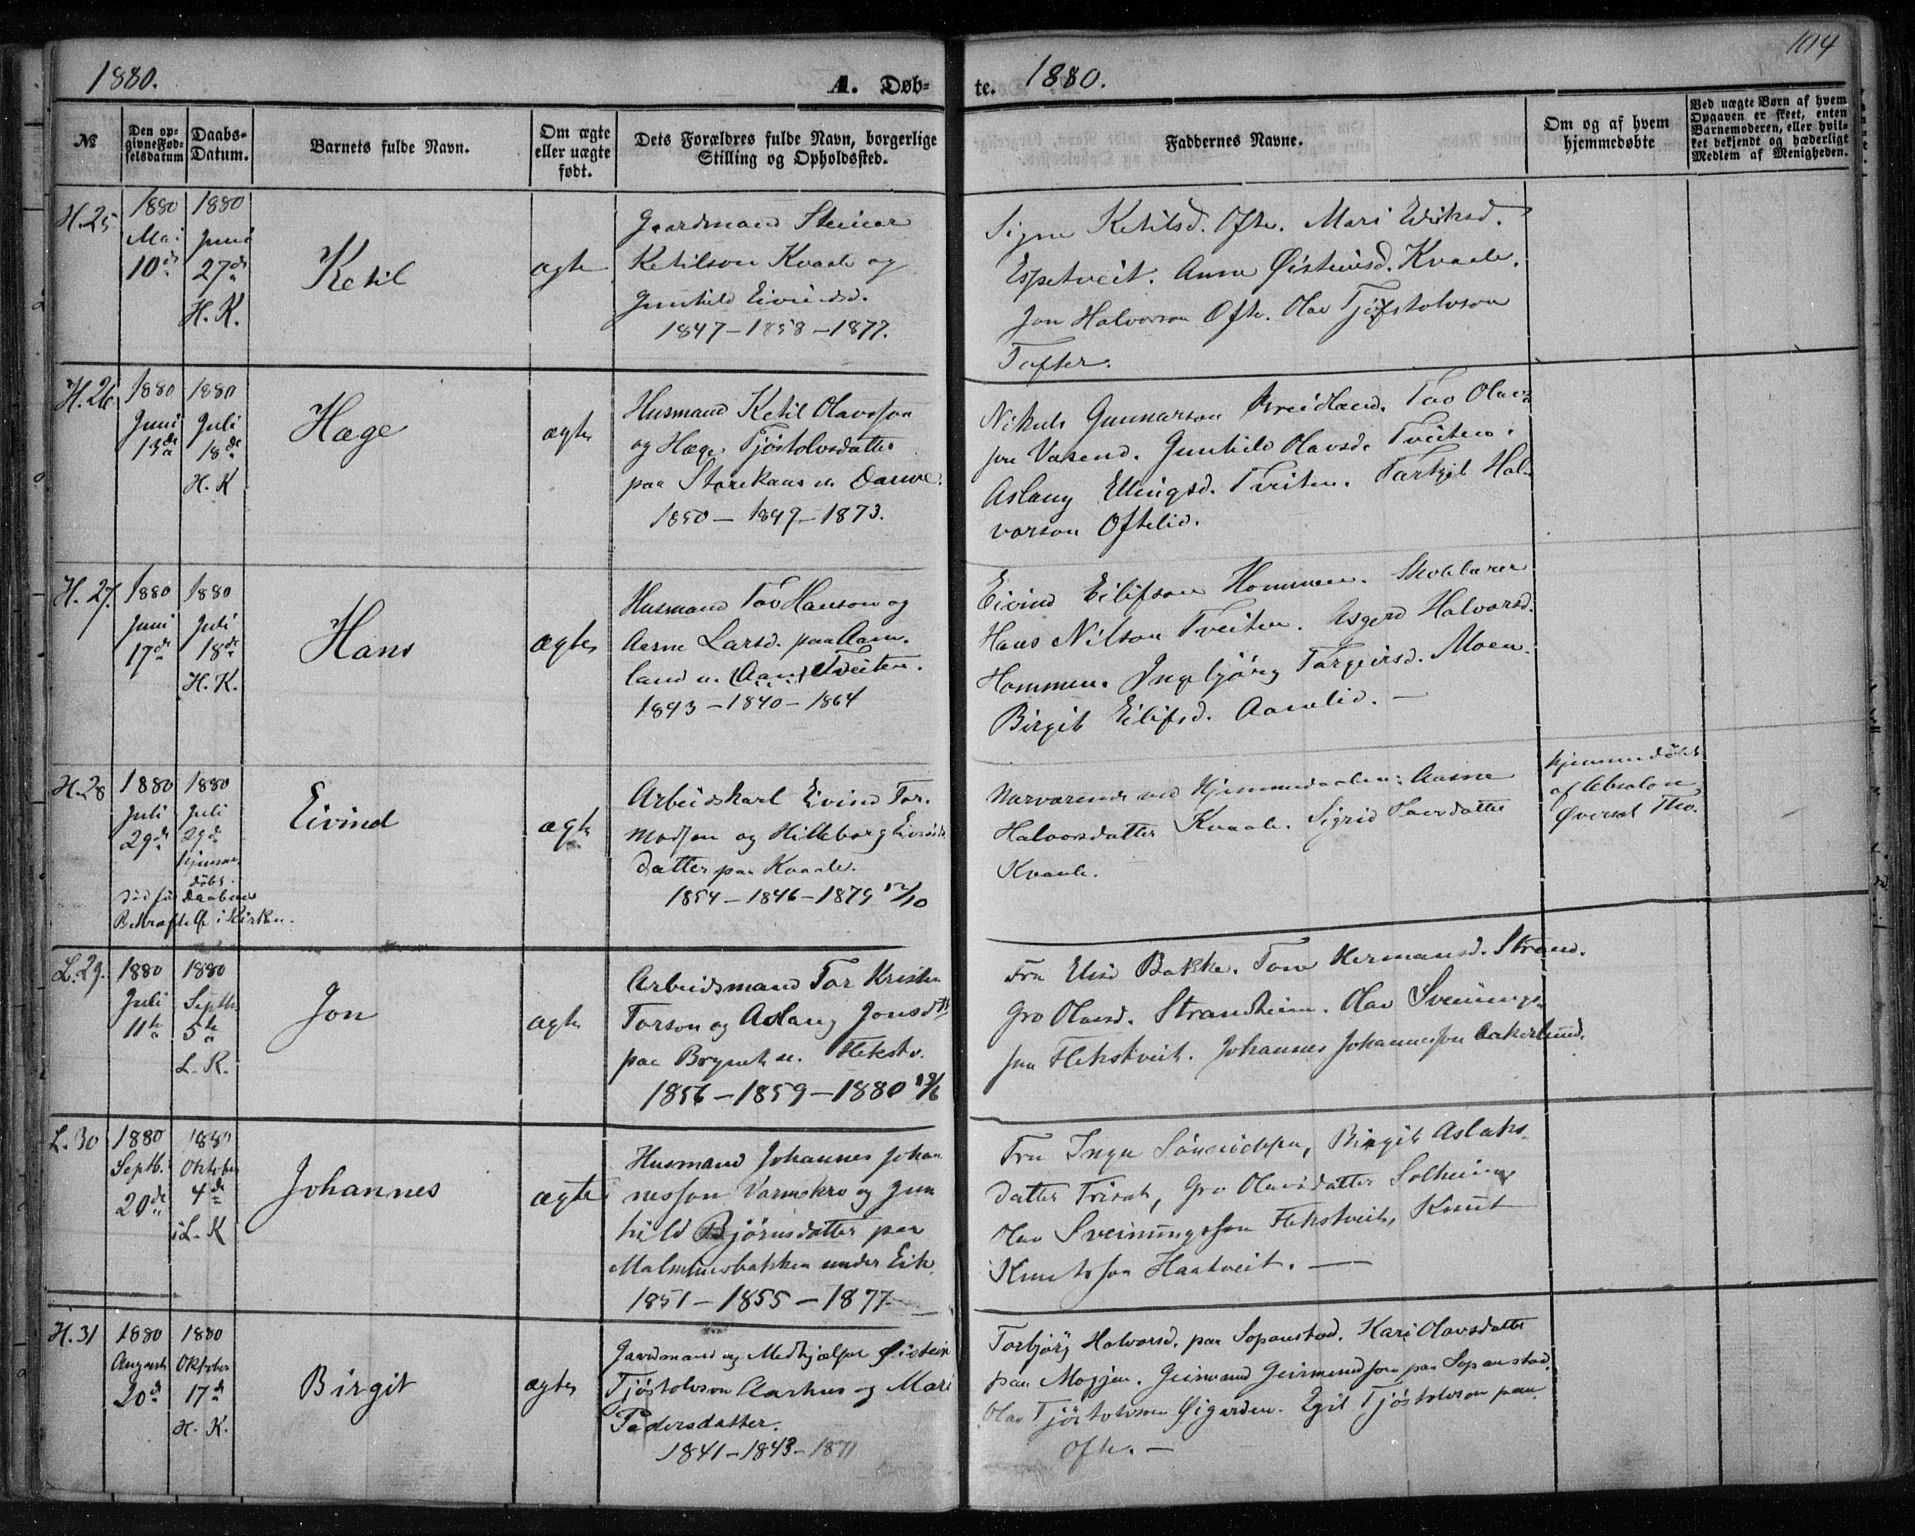 1880.
A. Døb-
te. 1880.
104
№
Den op-
givne Fød-
selsdatum
Daabs-
Datum.
Barnets fulde Navn.
Om ægte
eller uægte
født.
Dets Forældres fulde Navn, borgerlige
Stilling og Opholdssted.
Faddernes Navne.
Om og af hvem
hjemmedøbte
Ved uægte Børn af hvem
Opgaven er skeet, enten
Barnemoderen, eller hvil-
ket bekjendt og hæderligt
Medlem af Menigheden.
H. 25
1880
Mai
10de
1880
Juni
27de
H. K.
Ketil
ægte
Gaardmand Steinar
Ketilson Kvaale og
Gunhild Eivindsd.
1847 – 1858 – 1877.
Signe Ketilsd. Ofte. Mari Eriksd.
Espetveit. Anne Øisteinsd. Kvaale.
Jon Halvorson Ofte. Olav Tjøstolvson
Tofter.
H. 26
1880
Juni
13de
1880
Juli
18de
H. K
Hæge
ægte
Husmand Ketil Olavsson
og Hæge Tjøstolvsdatter
paa
1850 – 1849 – 1873.
Nikuls Gunnarson Breidland. Tov Olavs-
son Vasend. Gunhild Olavsd. Tveiten.
Aslaug Ellingsd. Tveiten. Targjei Hal-
vorson Oftelid.
H. 27.
1880
Juni
17de
1880
Juli
18de
H. K.
Hans
ægte
Husmand Tov Hanson og
Aasne Larsd. paa Aam-
land u. Tveiten.
1843 – 1840 – 1864
Eivind Eilifson Hommen. Skolelærer
Hans Nilson Tveiten. Asgerd Halvorsd.
Hommen. Ingebjørg Targjeirsd. Moen.
Birgit Eilifsd. Aamlid. —
H. 28
1880
Juli
29de
1880
Juli
29de
hjemme-
døbt.
død før Daabens
Bekræftelse i Kirken.
Eivind
ægte
Arbeidskarl Eivind Tor-
modson og Hilleborg Eivinds-
datter paa Kvaale.
1854 – 1846 – 1879 12/10
Nærværende ved Hjemmedaaben: Aasne
Halvorsdatter Kvaale. Sigrid Tovsdatter
Kvaale.
hjemmedøbt
af Absalon
Øverset Tho.
L. 29.
1880
Juli
11te
1880
Septb.
5te
L. K.
Jon
ægte
Arbeidsmand Tor Kristen
Torson og Aslaug Jonsdtr
paa Brynet u. Flekstv.
1856 – 1859 – 1880
Fru Elise Bakke. Tone Hermansd. Strand.
Gro Olavsd. Strandheim. Olav Sveinungs-
son Flekstveit. Johannes Johannesson Aakerlund.
L. 30
1880
Septb.
20de
1880
Oktober
4de
i L. K
Johannes
ægte
Husmand Johannes Johan-
nesson Varmekro og Gun-
hild Bjørnsdatter paa
Malmmobakken under Eik.
1851 – 1855 – 1877
Fru Inga Birgit Aslaks-
datter Trisæt, Gro Olavsdatter Solheim
Olav Sveinungsson Flekstveit, Knut
Knutsson Haatveit. —
H. 31
1880
August
20de
1880
Oktober
17de
H. K.
Birgit
ægte
Gardmand og Medhjælper Øistein
Tjøstolvson Aarhus og Mari
Pedersdatter.
1841 – 1843 – 1871
Torbjørg Halvorsd. paa Sopanstad. Kari Olavsdatter
paa Mogjen. Geirmund Geirmundson paa Sopanstad.
Olav Tjøstolvson Øigarden. Egil Tjøstolvson paa
Ofte. —